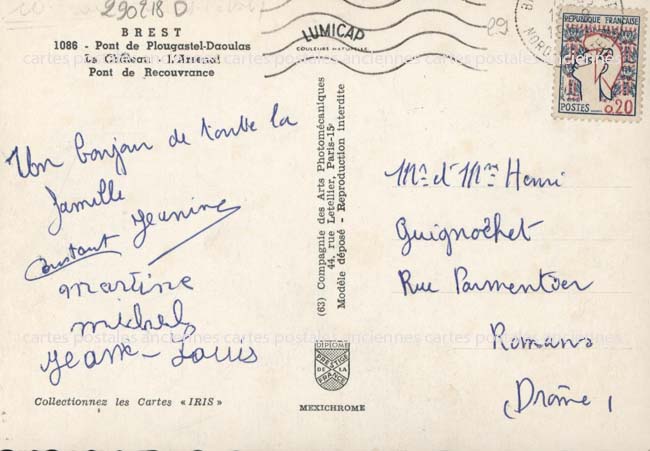 290218 D
BREST
1086 - Pont de Plougastel-Daoulas
Le Château - L'Arsenal
Pont de Recouvrance
Un bonjour de toute la
famille
Constant Jeanine
martine
michel
Jean-Louis
Collectionnez les Cartes « IRIS »
LUMICAP
COULEURS NATURELLES
(63) Compagnie des Arts Photomécaniques
44, rue Letellier, Paris-15e
Modèle déposé - Reproduction interdite
DIPLOME
PRESTIGE
DE LA
FRANCE
MEXICHROME
29
NORD
REPUBLIQUE FRANÇAISE
POSTES
0,20
Mr et Mme Henri
Guignochet
Rue Parmentier
Romans
(Drôme)
cartes postales anciennes cartes postales anciennes cartes postales anciennes
cartes postales anciennes cartes postales anciennes cartes postales anciennes